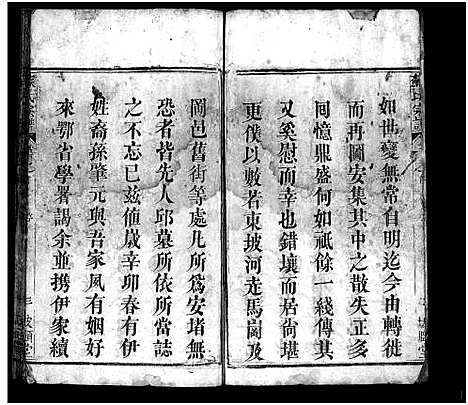 如世變無常自明迄今由轉徙
而再圖安集其中之散失正多
回憶鼎盛何如祗餘一綫傳其
又奚慰而幸也錯壤而居尚堪
更僕以數若東坡河走馬崗及
岡邑舊街等處凡所爲安堵無
恐者皆先人邱墓所依所當誌
之不忘已兹値歲辛卯春有同
姓裔孫肇元與吾家夙有姻好
來鄂省學署謁余並携伊家續